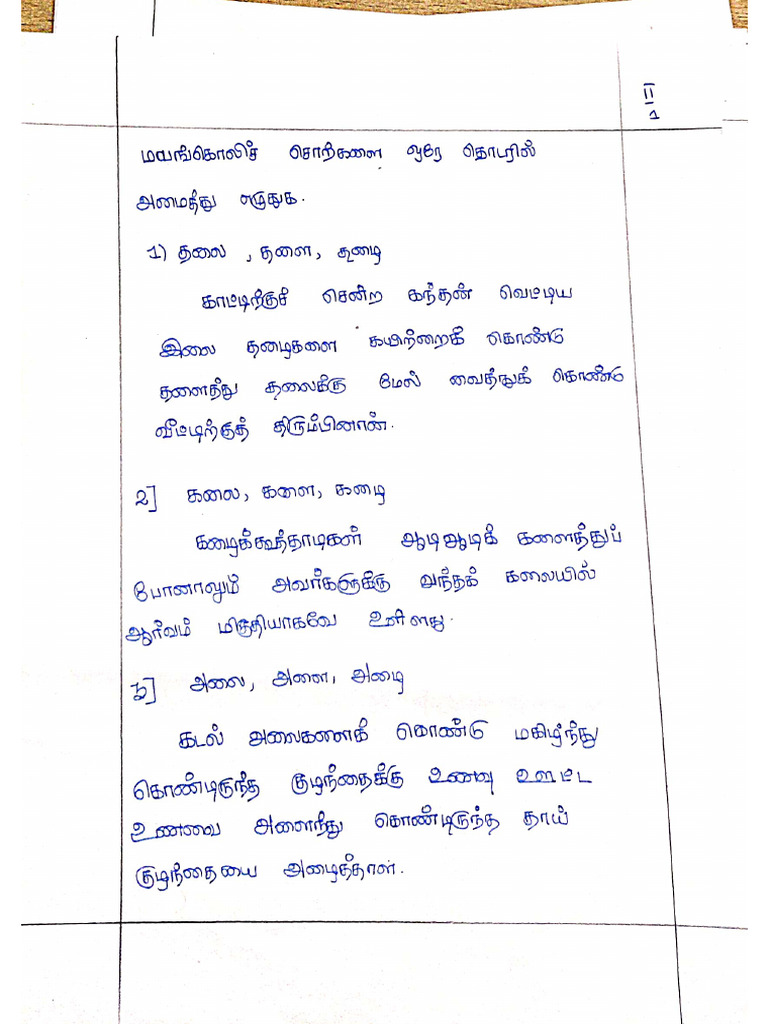 II
1
மயங்கொலிச் சொற்களை ஒரே தொடரில்
அமைத்து எழுதுக.
1) தலை, தளை, தழை
காட்டிற்குச் சென்ற கந்தன் வெட்டிய
இலை தழைகளை கயிற்றைக் கொண்டு
தளைத்து தலைக்கு மேல் வைத்துக் கொண்டு
வீட்டிற்குத் திரும்பினான்.
2] கலை, களை, கழை
கழைக்கூத்தாடிகள் ஆடிஆடிக் களைத்துப்
போனாலும் அவர்களுக்கு அந்தக் கலையில்
ஆர்வம் மிகுதியாகவே உள்ளது.
3] அலை, அளை, அழை
கடல் அலைகளைக் கொண்டு மகிழ்ந்து
கொண்டிருந்த குழந்தைக்கு உணவு ஊட்ட
உணவை அளைந்து கொண்டிருந்த தாய்
குழந்தையை அழைத்தாள்.